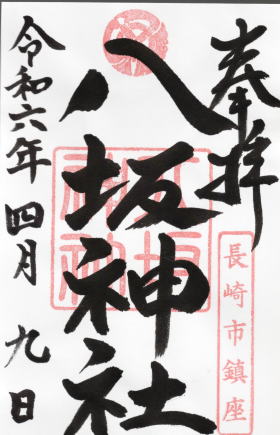 奉拝
長崎市鎮座
八坂神社
令和六年四月九日